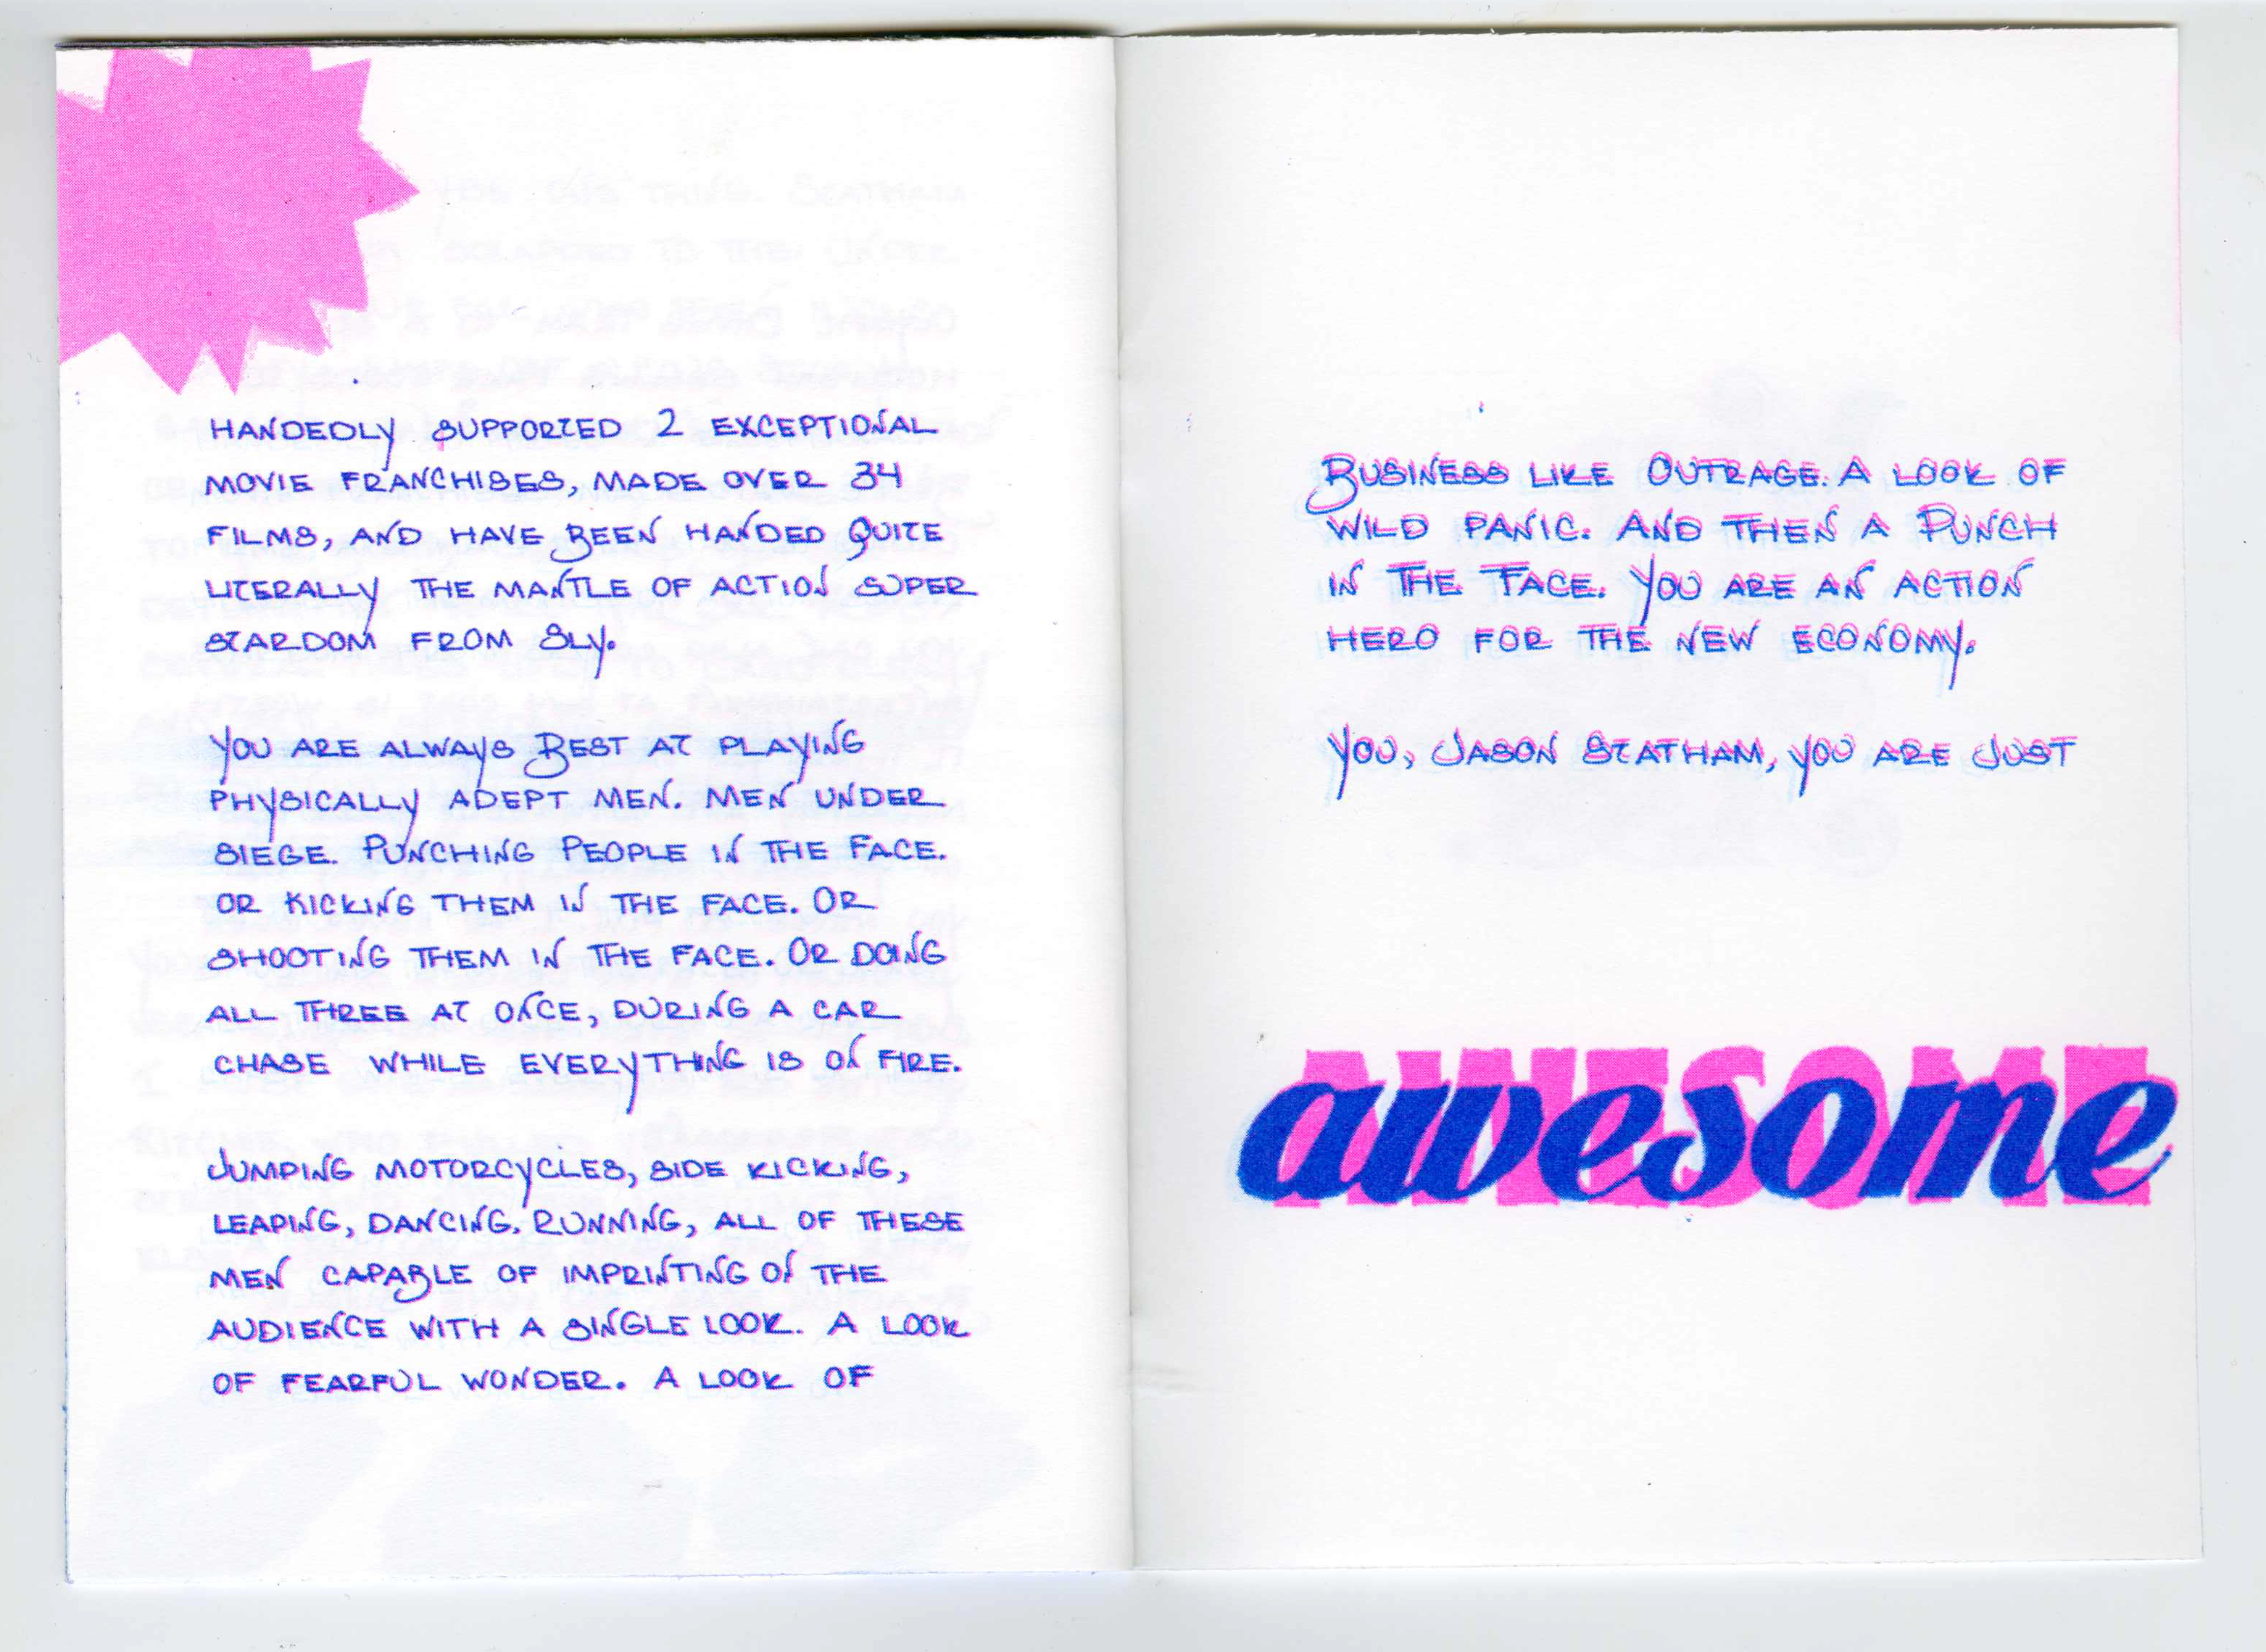 HANDEDLY SUPPORTED 2 EXCEPTIONAL
MOVIE FRANCHISES, MADE OVER 34
FILMS, AND HAVE BEEN HANDED QUITE
LITERALLY THE MANTLE OF ACTION SUPER
STARDOM FROM SLY.
YOU ARE ALWAYS BEST AT PLAYING
PHYSICALLY ADEPT MEN. MEN UNDER
SIEGE. PUNCHING PEOPLE IN THE FACE.
OR KICKING THEM IN THE FACE. OR
SHOOTING THEM IN THE FACE. OR DOING
ALL THREE AT ONCE, DURING A CAR
CHASE WHILE EVERYTHING IS ON FIRE.
JUMPING MOTORCYCLES, SIDE KICKING,
LEAPING, DANCING, RUNNING, ALL OF THESE
MEN CAPABLE OF IMPRINTING ON THE
AUDIENCE WITH A SINGLE LOOK. A LOOK
OF FEARFUL WONDER. A LOOK OF
BUSINESS LIKE OUTRAGE. A LOOK OF
WILD PANIC. AND THEN A PUNCH
IN THE FACE. YOU ARE AN ACTION
HERO FOR THE NEW ECONOMY.
YOU, JASON STATHAM, YOU ARE JUST
AWESOME
awesome